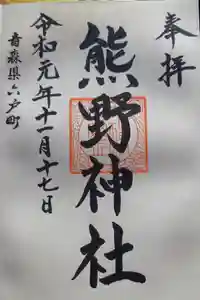 奉拝
熊野神社
令和元年十一月十七日
青森県六戸町